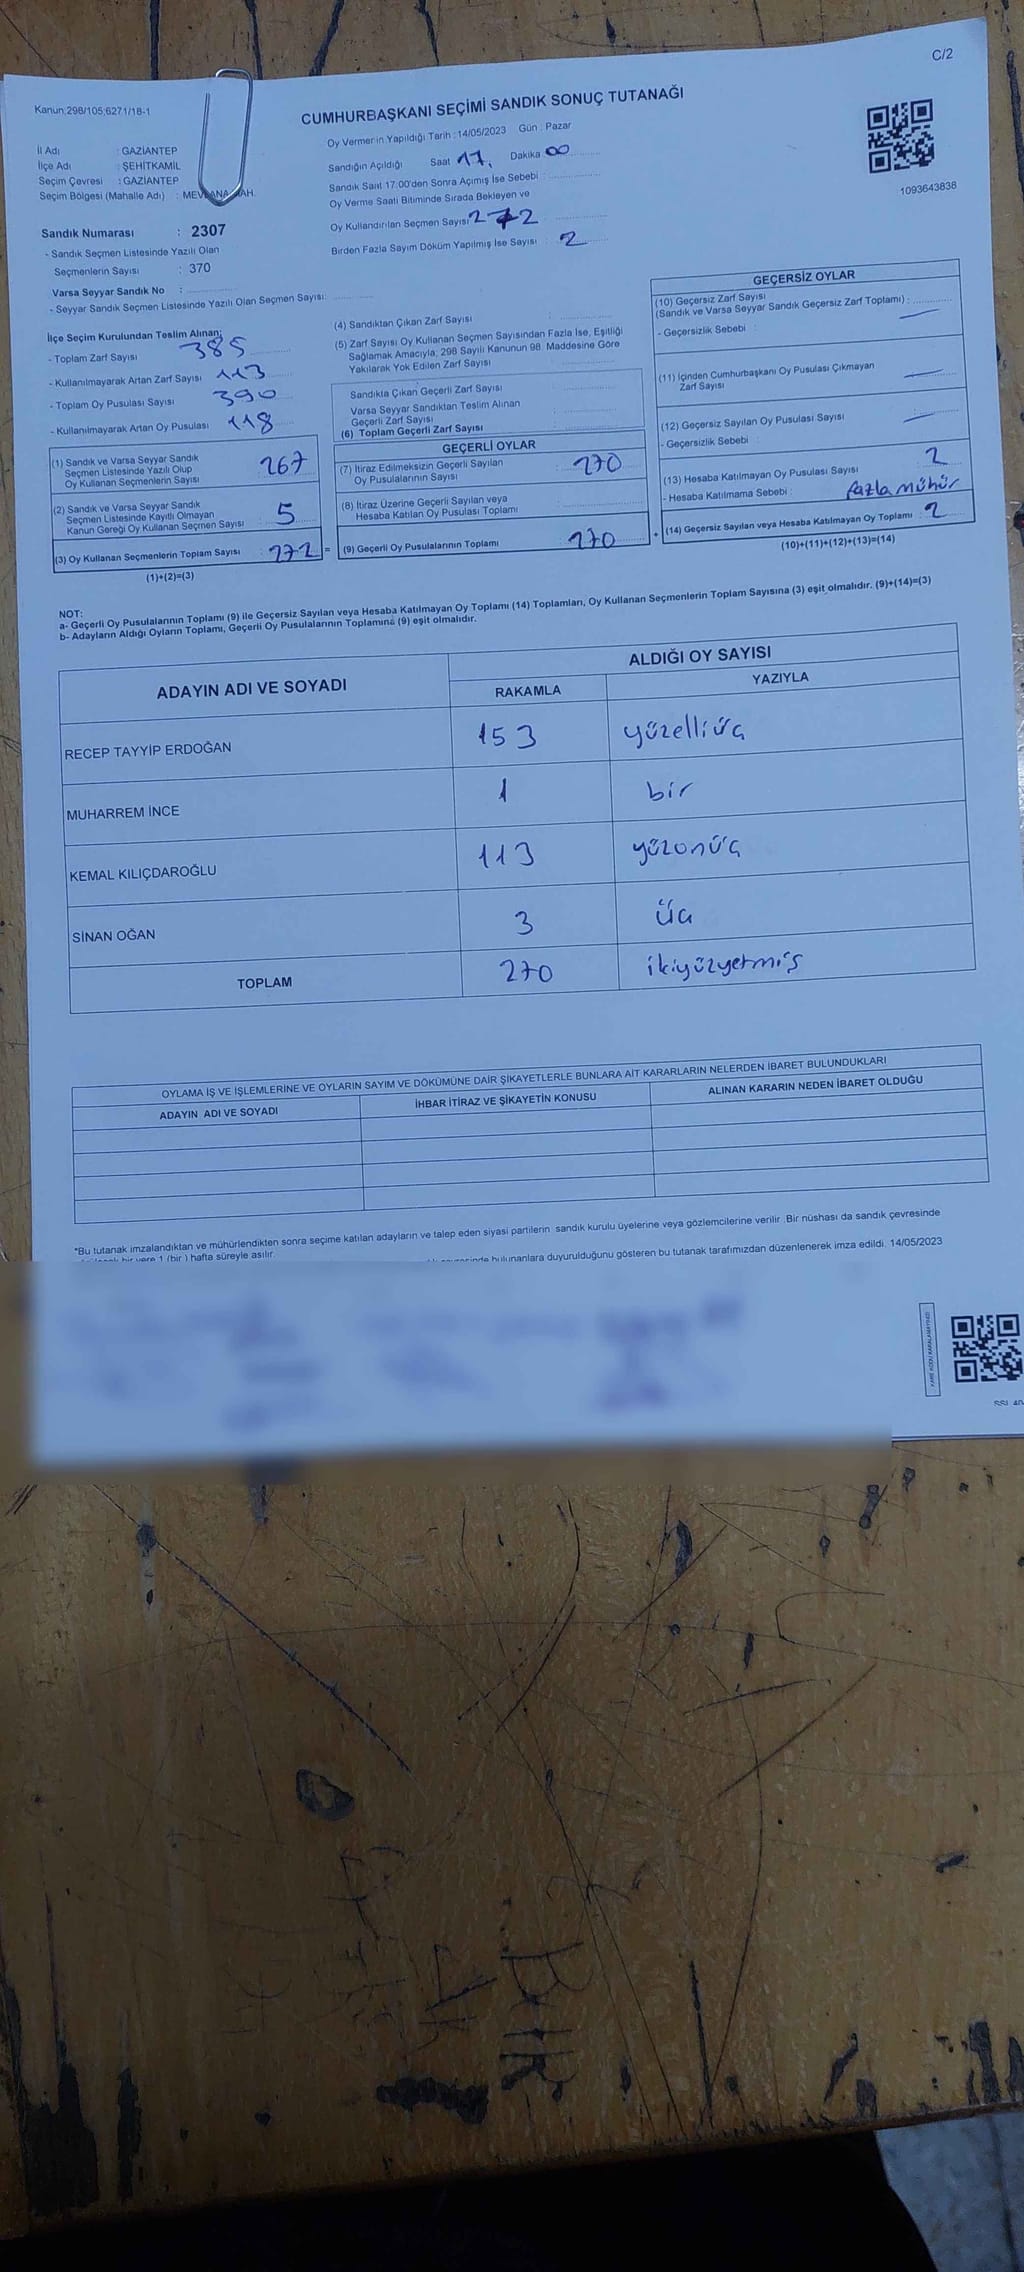 C/2
Kanun:298/105;6271/18-1
CUMHURBAŞKANI SEÇİMİ SANDIK SONUÇ TUTANAĞI
Oy Vermenin Yapıldığı Tarih :14/05/2023 Gün : Pazar
İl Adı : GAZİANTEP
İlçe Adı : ŞEHİTKAMİL
Seçim Çevresi : GAZİANTEP
Seçim Bölgesi (Mahalle Adı) : MEVLANA MAH.
Sandığın Açıldığı Saat 17. Dakika 00
Sandık Saat 17:00'den Sonra Açılmış İse Sebebi :
Oy Verme Saati Bitiminde Sırada Bekleyen ve
Oy Kullandırılan Seçmen Sayısı 272
Birden Fazla Sayım Döküm Yapılmış İse Sayısı : 2
1093643838
Sandık Numarası : 2307
- Sandık Seçmen Listesinde Yazılı Olan
Seçmenlerin Sayısı : 370
Varsa Seyyar Sandık No :
- Seyyar Sandık Seçmen Listesinde Yazılı Olan Seçmen Sayısı:
İlçe Seçim Kurulundan Teslim Alınan;
- Toplam Zarf Sayısı 385
- Kullanılmayarak Artan Zarf Sayısı 113
- Toplam Oy Pusulası Sayısı 390
- Kullanılmayarak Artan Oy Pusulası 118
(1) Sandık ve Varsa Seyyar Sandık
Seçmen Listesinde Yazılı Olup
Oy Kullanan Seçmenlerin Sayısı : 267
(2) Sandık ve Varsa Seyyar Sandık
Seçmen Listesinde Kayıtlı Olmayan
Kanun Gereği Oy Kullanan Seçmen Sayısı : 5
(3) Oy Kullanan Seçmenlerin Toplam Sayısı : 272 =
(1)+(2)=(3)
(4) Sandıktan Çıkan Zarf Sayısı :
(5) Zarf Sayısı Oy Kullanan Seçmen Sayısından Fazla İse, Eşitliği
Sağlamak Amacıyla; 298 Sayılı Kanunun 98. Maddesine Göre
Yakılarak Yok Edilen Zarf Sayısı :
Sandıkta Çıkan Geçerli Zarf Sayısı :
Varsa Seyyar Sandıktan Teslim Alınan
Geçerli Zarf Sayısı :
(6) Toplam Geçerli Zarf Sayısı :
GEÇERLİ OYLAR
(7) İtiraz Edilmeksizin Geçerli Sayılan
Oy Pusulalarının Sayısı : 270
(8) İtiraz Üzerine Geçerli Sayılan veya
Hesaba Katılan Oy Pusulası Toplamı :
(9) Geçerli Oy Pusulalarının Toplamı : 270 +
GEÇERSİZ OYLAR
(10) Geçersiz Zarf Sayısı
(Sandık ve Varsa Seyyar Sandık Geçersiz Zarf Toplamı) : —
- Geçersizlik Sebebi :
(11) İçinden Cumhurbaşkanı Oy Pusulası Çıkmayan
Zarf Sayısı : —
(12) Geçersiz Sayılan Oy Pusulası Sayısı : —
- Geçersizlik Sebebi :
(13) Hesaba Katılmayan Oy Pusulası Sayısı : 2
- Hesaba Katılmama Sebebi : fazla mühür
(14) Geçersiz Sayılan veya Hesaba Katılmayan Oy Toplamı : 2
(10)+(11)+(12)+(13)=(14)
NOT:
a- Geçerli Oy Pusulalarının Toplamı (9) ile Geçersiz Sayılan veya Hesaba Katılmayan Oy Toplamı (14) Toplamları, Oy Kullanan Seçmenlerin Toplam Sayısına (3) eşit olmalıdır. (9)+(14)=(3)
b- Adayların Aldığı Oyların Toplamı, Geçerli Oy Pusulalarının Toplamına (9) eşit olmalıdır.
ADAYIN ADI VE SOYADI
ALDIĞI OY SAYISI
RAKAMLA YAZIYLA
RECEP TAYYİP ERDOĞAN 153 yüzelliüç
MUHARREM İNCE 1 bir
KEMAL KILIÇDAROĞLU 113 yüzonüç
SİNAN OĞAN 3 üç
TOPLAM 270 ikiyüzyetmiş
OYLAMA İŞ VE İŞLEMLERİNE VE OYLARIN SAYIM VE DÖKÜMÜNE DAİR ŞİKAYETLERLE BUNLARA AİT KARARLARIN NELERDEN İBARET BULUNDUKLARI
ADAYIN ADI VE SOYADI İHBAR İTİRAZ VE ŞİKAYETİN KONUSU ALINAN KARARIN NEDEN İBARET OLDUĞU
*Bu tutanak imzalandıktan ve mühürlendikten sonra seçime katılan adayların ve talep eden siyasi partilerin sandık kurulu üyelerine veya gözlemcilerine verilir. Bir nüshası da sandık çevresinde
bir yere 1 (bir) hafta süreyle asılır.
bulunanlara duyurulduğunu gösteren bu tutanak tarafımızdan düzenlenerek imza edildi. 14/05/2023
KARE KODU KARALAMAYINIZ!